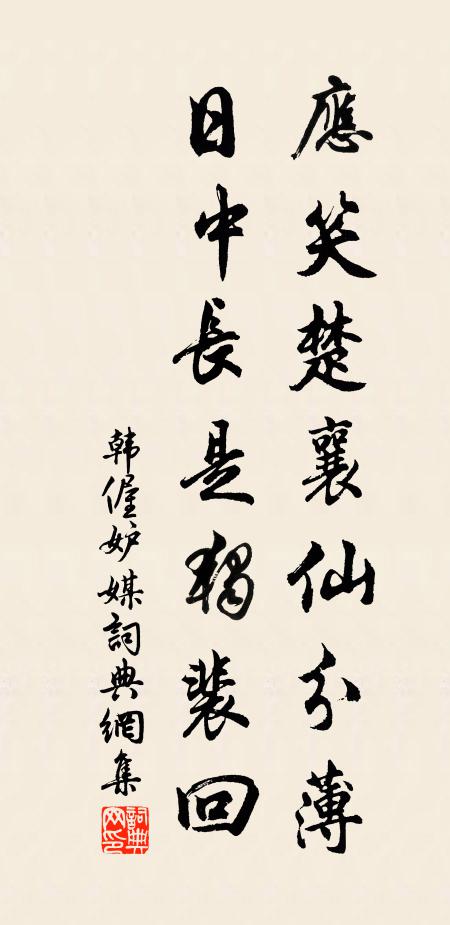 應笑楚襄仙分薄
日中長是獨裴回
韩偓妒媒詞典網集
詞典网印